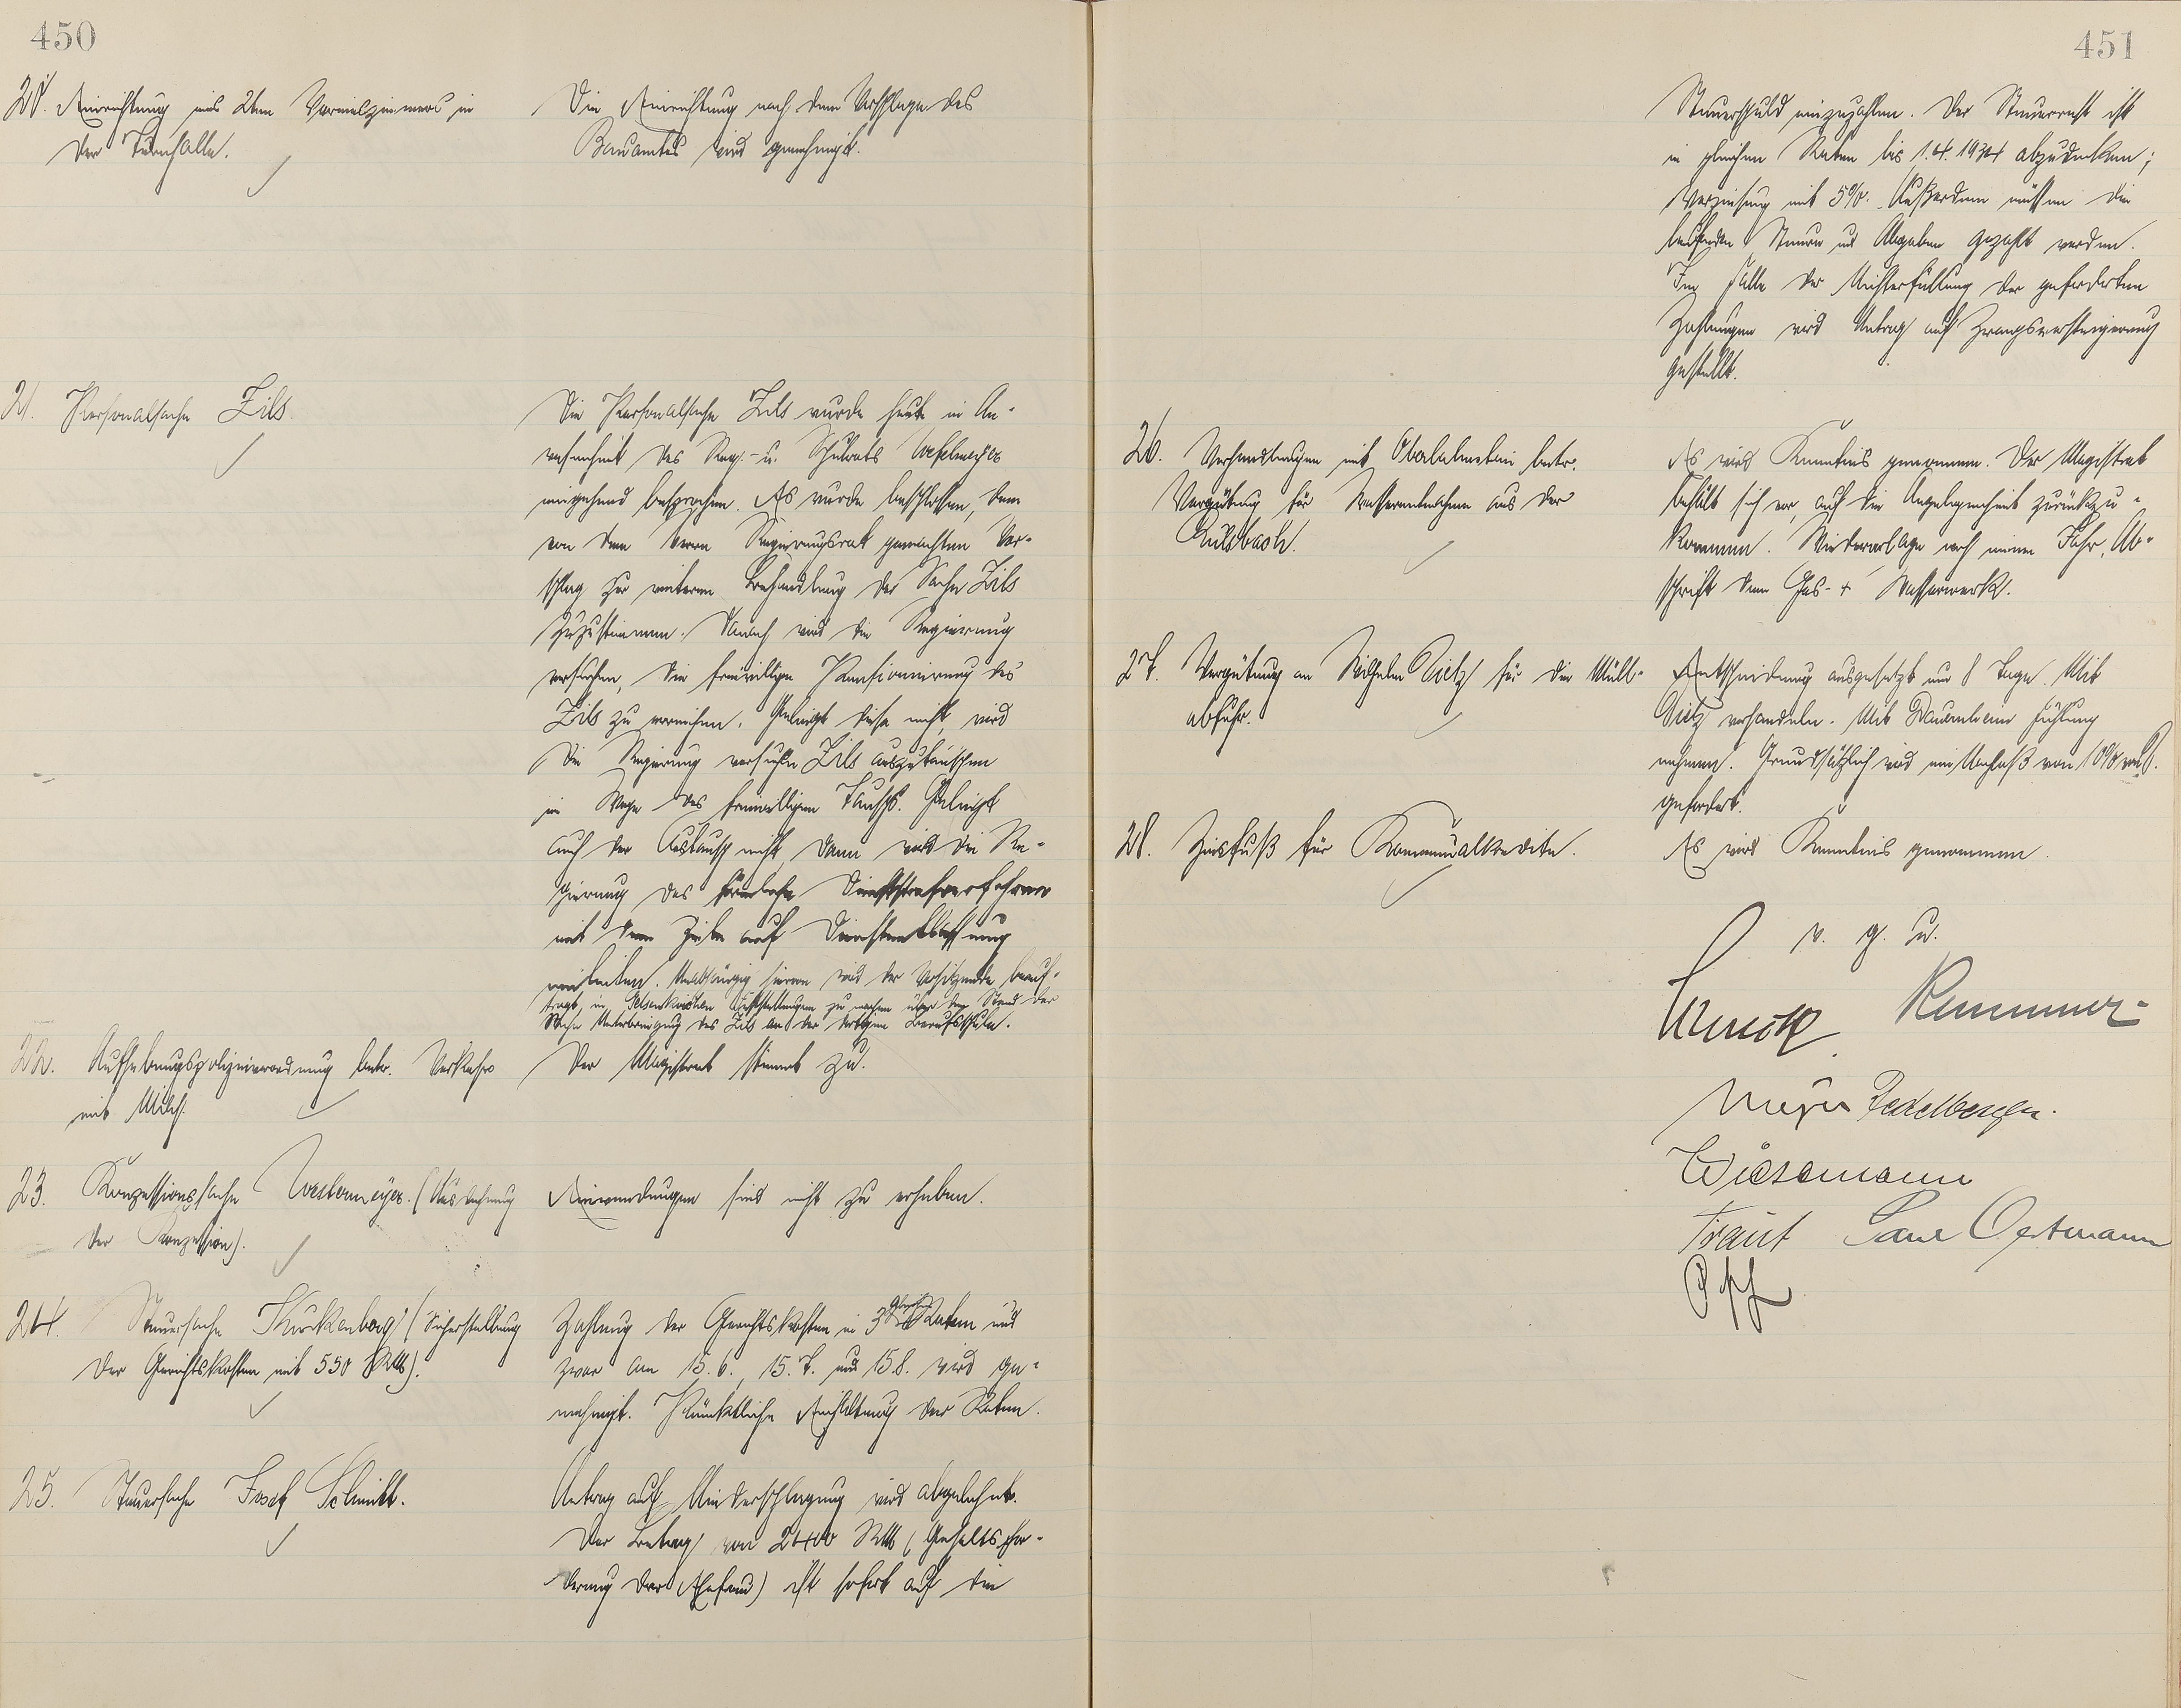 450
20. Einrichtung eines 2ten Vereinszimmers in
der Turnhalle.
Die Einrichtung nach dem Vorschlage des
Bauamtes wird genehmigt.
21. Personalsache Zils.
Die Personalsache Zils wurde heute in An-
wesenheit des Reg.- u. Schulrats Wefelmeyer
eingehend besprochen. Es wurde beschlossen, dem
von dem Herrn Regierungsrat gemachten Vor-
schlag zur weiteren Behandlung der Sache Zils
zuzustimmen. Danach wird die Regierung
versuchen, die freiwillige Pensionierung des
Zils zu erreichen. Gelingt diese nicht, wird
die Regierung versuchen Zils auszutauschen
im Wege des freiwilligen Tauschs. Gelingt
auch der Austausch nicht, dann wird die Re-
gierung das förmliche Dienststrafverfahren
mit dem Ziele auf Dienstentlassung
einleiten. Unabhängig hiervon wird der Vorsitzende beauf-
tragt in Gelsenkirchen Feststellungen zu machen über den Stand der
Sache Unterbringung des Zils an der dortigen Berufsschule.
22. Aufhebungspolizeiverordnung betr. Verkehr
mit Milch.
Der Magistrat stimmt zu.
23. Konzessionssache Westermeyer. (Ausdehnung
der Konzession).
Einwendungen sind nicht zu erheben.
24. Steuersache Kürkenberg (Sicherstellung
der Gerichtskosten mit 550 RM).
Zahlung der Gerichtskosten in 3 gleichen Raten und
zwar am 15.6., 15.7. und 15.8. wird ge-
nehmigt. Pünktliche Einhaltung der Raten.
25. Steuersache Josef Schmitt.
Antrag auf Niederschlagung wird abgelehnt.
Der Betrag von 2400 RM (Gehaltsfor-
derung der Ehefrau) ist sofort auf die
451
Steuerschuld einzuzahlen. Der Steuerrest ist
in gleichen Raten bis 1.4.1934 abzudecken;
Verzinsung mit 5%. Außerdem müssen die
laufenden Steuern und Abgaben gezahlt werden.
Im Falle der Nichterfüllung der geforderten
Zahlungen wird Antrag auf Zwangsversteigerung
gestellt.
26. Verhandlungen mit Oberlahnstein betr.
Vergütung für Wasserentnahme aus der
Es wird Kenntnis genommen. Der Magistrat
behält sich vor, auf die Angelegenheit zurückzu-
kommen. Wiedervorlage nach einem Jahr. Ab-
schrift dem Gas- + Wasserwerk.
27. Vergütung an Wilhelm Dietz für die Müll-
abfuhr.
Entscheidung ausgesetzt um 8 Tage. Mit
Dietz verhandeln. Mit Fühlung
nehmen. Grundsätzlich wird ein Nachlaß von 10%
gefordert.
28. Zinsfuß für Kommunalkredite.
Es wird Kenntnis genommen.
v. g. u.
Meyer
Wiesemann
Traut Oestmann